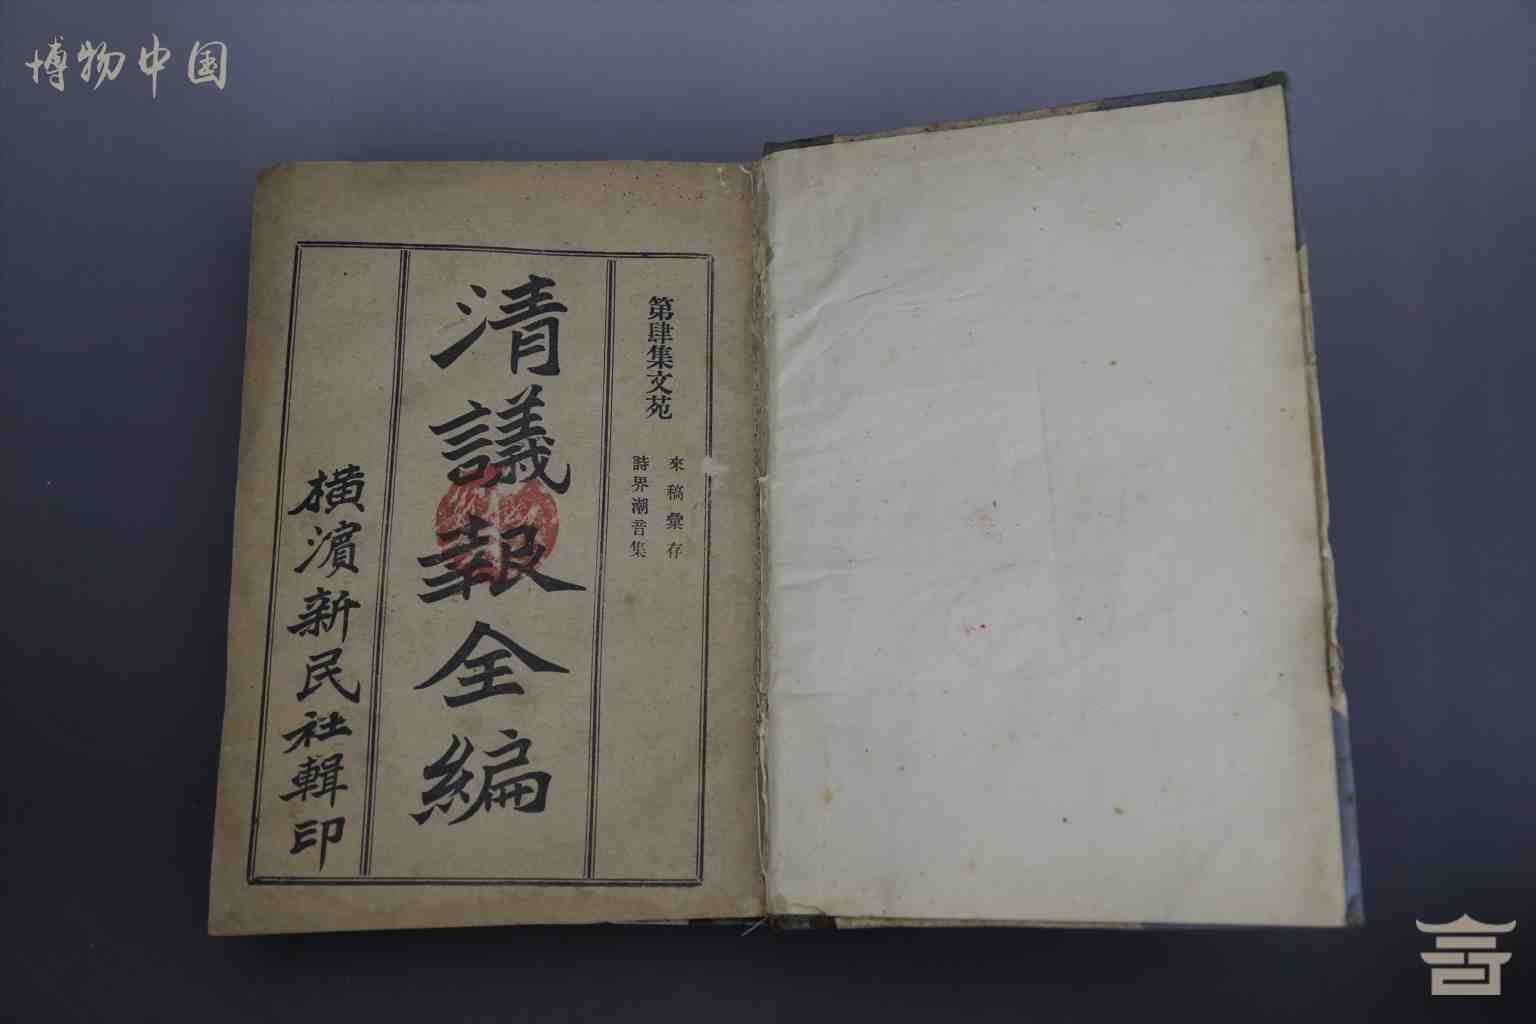 博物中国
第肆集文苑
來稿彙存
詩界潮音集
清議報全編
橫濱新民社輯印